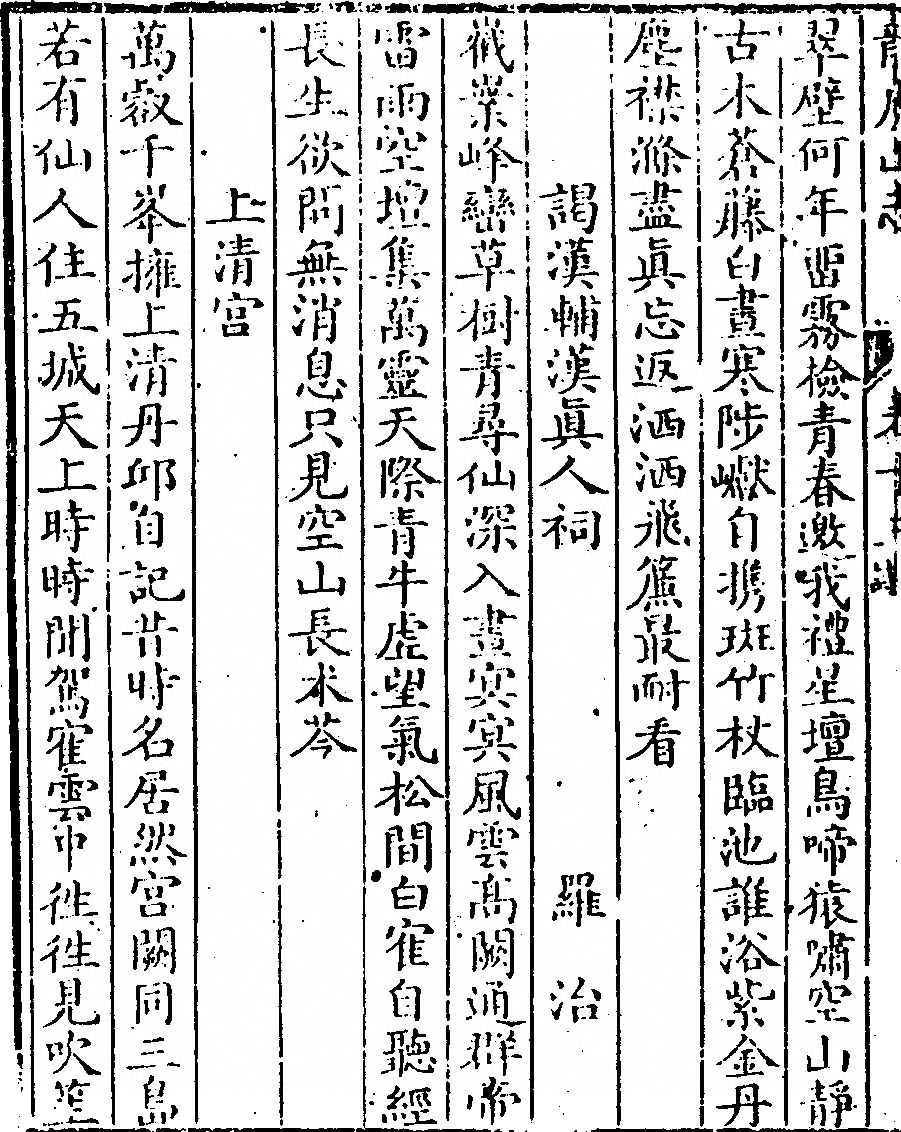 龍虎山志 卷十
翠壁何年畱霧檢青春邀我禮星壇鳥啼猿嘯空山靜
古木蒼藤白晝寒陟巘自携斑竹杖臨池誰浴紫金丹
塵襟滌盡眞忘返洒洒飛簾最耐看
謁漢輔漢眞人祠 羅治
嶻嶪峰巒草樹青尋仙深入晝冥冥風雲高闕通群帝
雷雨空壇集萬靈天際青牛虛望氣松間白寉自聽經
長生欲問無消息只見空山長朮苓
上清宮
萬壑千峯擁上清丹邱自記昔時名居然宮闕同三島
若有仙人住五城天上時時閒駕寉雲中徃徃見吹笙